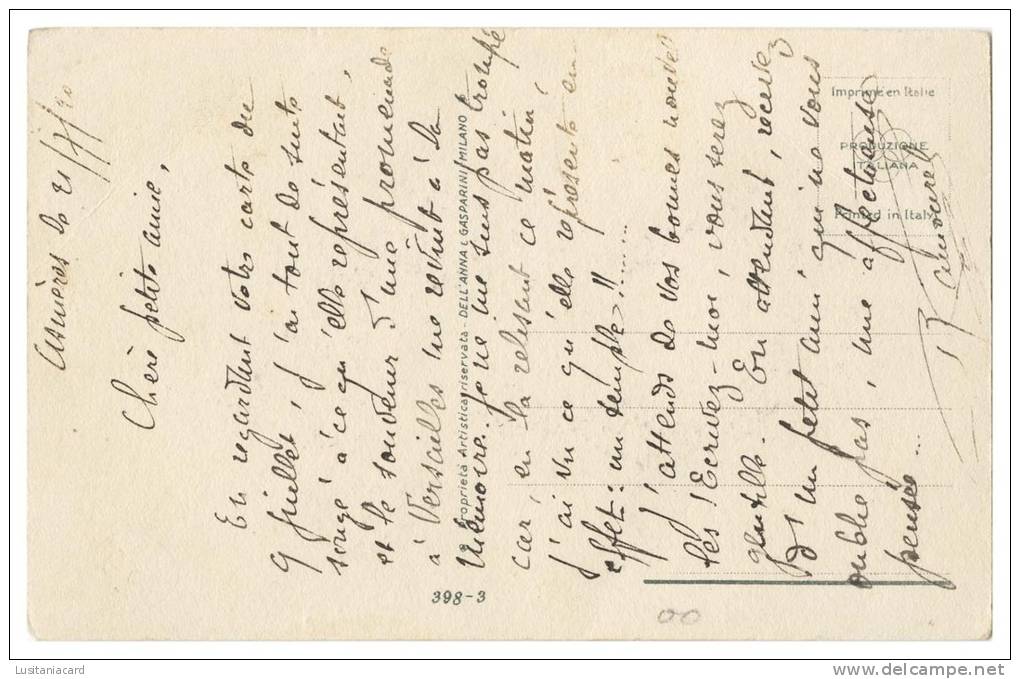 Asnières le 21/7/20
Chère petite amie,
En regardant votre carte du
9 juillet, j'ai tout de suite
songé à ce qu'elle représentait,
et le souvenir d'une promenade
à Versailles me revint à la
mémoire. Je ne suis pas trompé
car, en la relisant ce matin,
j'ai vu ce qu'elle représente en
effet: un temple!!......
J'attends de vos bonnes nouvel
les! Ecrivez-moi, vous serez
gentille. En attendant, recevez
d'un petit ami qui ne vous
oublie pas, une affectueuse
pensée...
Proprietà Artistica riservata - DELL'ANNA & GASPARINI / MILANO
398-3
Imprimé en Italie
PRODUZIONE
ITALIANA
Printed in Italy
00
Lusitaniacard
http://www.delcampe.net